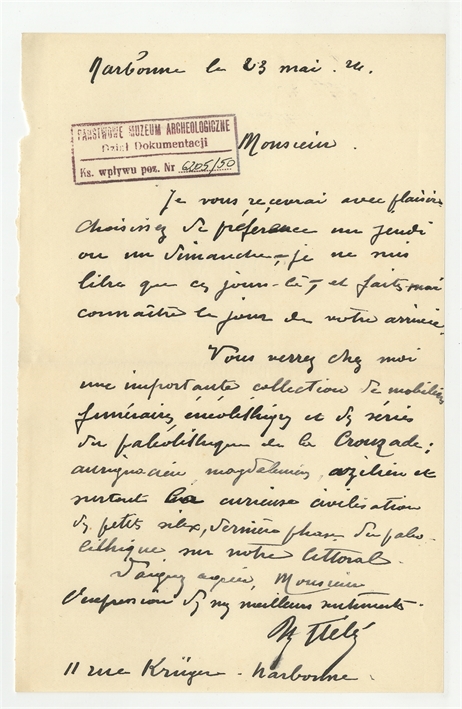 Narbonne le 23 mai. 24.
PAŃSTWOWE MUZEUM ARCHEOLOGICZNE
Dział Dokumentacji
Ks. wpływu poz. Nr 6205/50
Monsieur.
Je vous recevrai avec plaisir
choisissez de préférence un jeudi
ou un dimanche, je ne suis
libre que ces jours-là, et faites moi
connaître le jour de votre arrivée.
Vous verrez chez moi
une importante collection de mobiliers
funéraires énéolithiques et des séries
du paléolithique de la Crouzade;
aurignacien magdalénien, azilien et
surtout la curieuse civilisation
des petits silex, dernière phase du paléo-
lithique sur notre littoral.
Daignez agréer, Monsieur
l'expression de mes meilleurs sentiments.
Héléna
11 rue Krüger. Narbonne.